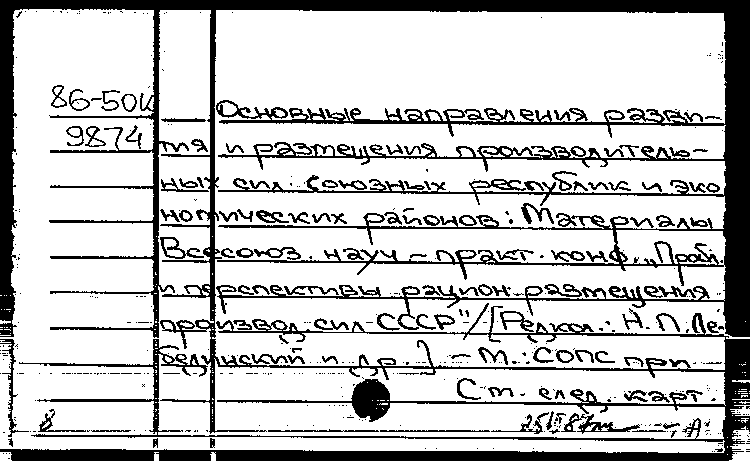 86-50к
9874
Основные направления разви-
тия и размещения производитель-
ных сил союзных республик и эко
номических районов: Материалы
Всесоюз. науч.-практ. конф. „Пробл.
и перспективы рацион. размещения
производ. сил СССР"/[Редкол.: Н.П. Ле-
бединский и др.] - М.: СОПС при
См. след. карт.
8